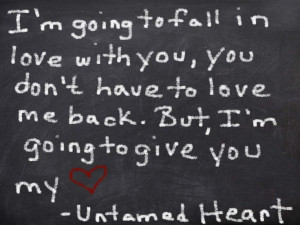 I'm going to fall in
love with you, you
don't have to love
me back. But, I'm
going to give you
my ♥
-Untamed Heart